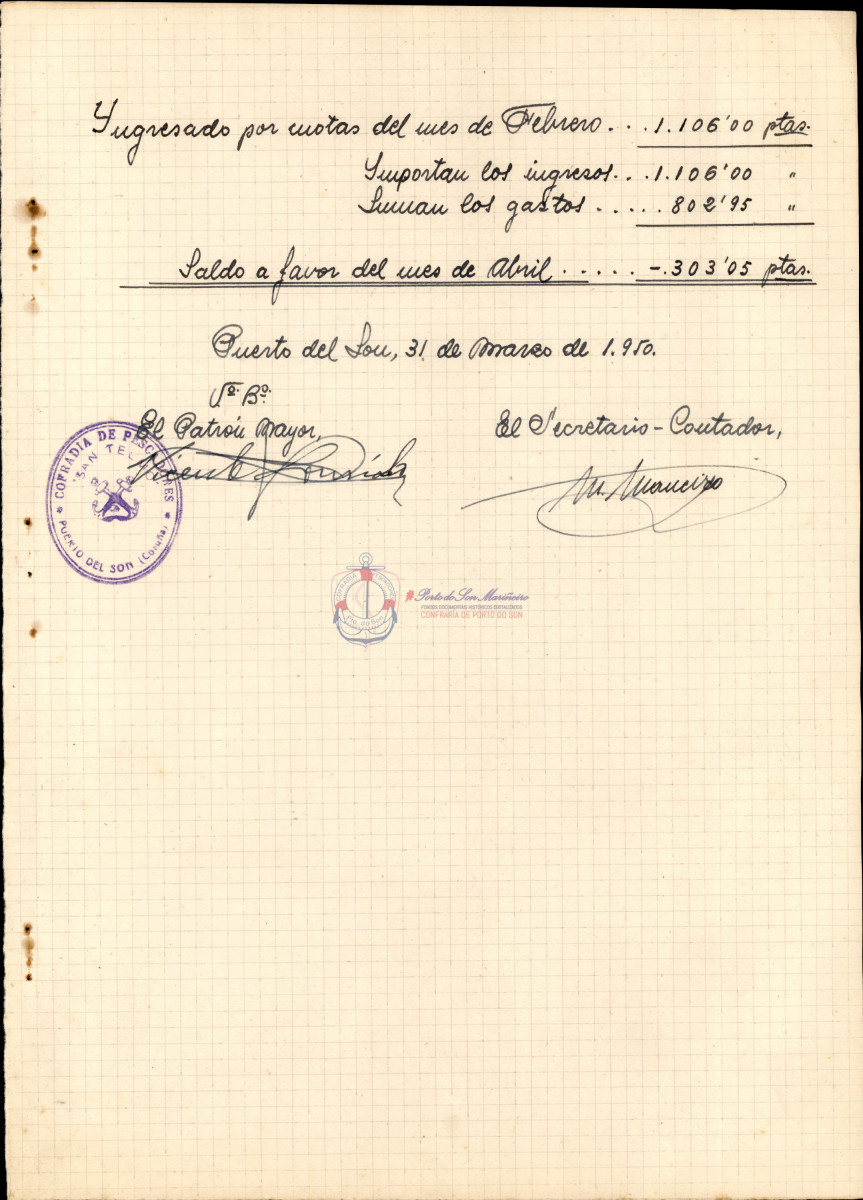 Yngresado por cuotas del mes de Febrero. . . 1.106'00 ptas.
Ymportan los ingresos. . . 1.106'00 "
Suman los gastos . . . . . 802'95 "
Saldo a favor del mes de Abril . . . . . -.303'05 ptas.
Puerto del Son, 31 de Marzo de 1.950.
Vº. Bº.
El Patrón Mayor,
El Secretario-Contador,
Vicente
M. Mancijo
COFRADIA DE PESCADORES
"SAN TEL
PUERTO DEL SON (Coruña)
#Porto do Son Mariñeiro
FONDOS DOCUMENTAIS HISTÓRICOS DIXITALIZADOS
CONFRARÍA DE PORTO DO SON